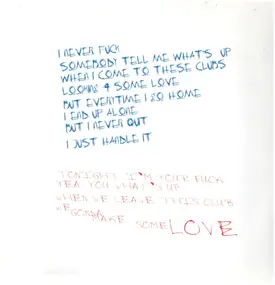 I NEVER FUCK
SOMEBODY TELL ME WHAT'S UP
WHEN I COME TO THESE CLUBS
LOOKING 4 SOME LOVE
BUT EVERYTIME I GO HOME
I END UP ALONE
BUT I NEVER QUIT
I JUST HANDLE IT
TONIGHT I'M YOUR FUCK
YEA YOU WHAT'S UP
WHEN WE LEAVE THIS CLUB
WE GONNA MAKE SOME LOVE